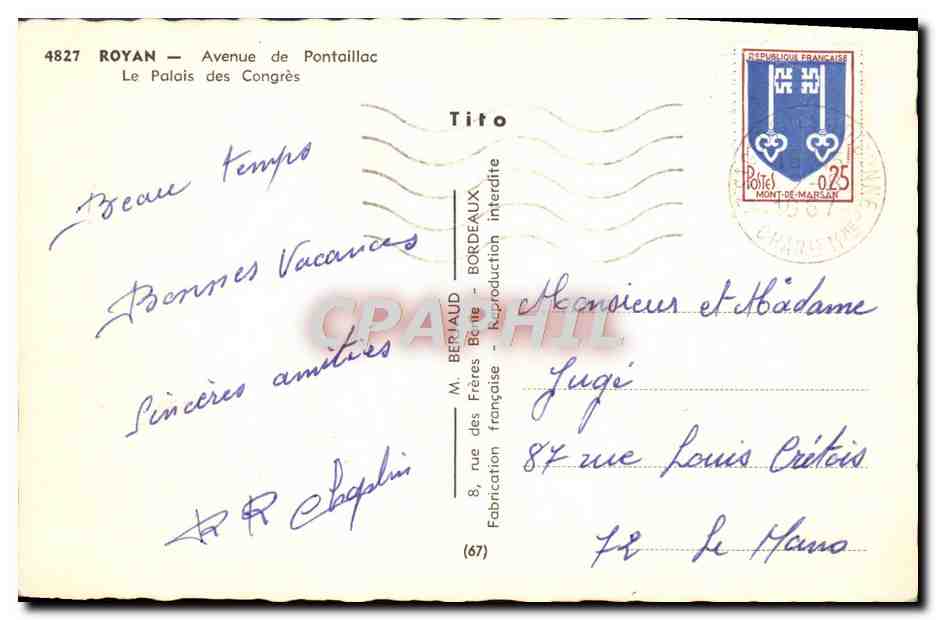 4827 ROYAN — Avenue de Pontaillac
Le Palais des Congrès
Tito
RÉPUBLIQUE FRANÇAISE
POSTES
0,25
MONT-DE-MARSAN
Beau temps
Bonnes Vacances
Sincères amitiés
R R Chaplin
M. BERJAUD
8, rue des Frères Bonie - BORDEAUX
Fabrication française - Reproduction interdite
(67)
CPAPHIL
Monsieur et Madame
Jugé
87 rue Louis Crétois
72 Le Mans